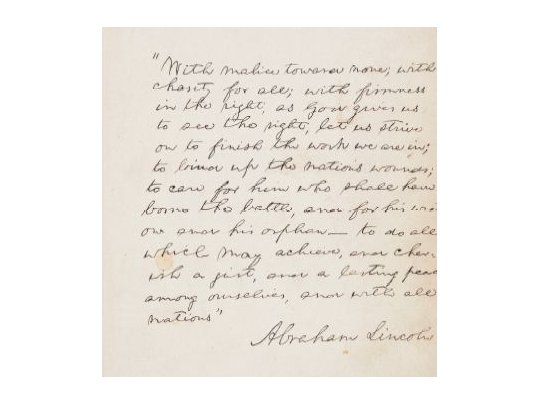 "With malice toward none; with
charity for all; with firmness
in the right, as God gives us
to see the right, let us strive
on to finish the work we are in;
to bind up the nations wounds;
to care for him who shall have
borne the battle, and for his wid-
ow and his orphan — to do all
which may achieve, and cher-
ish a just, and a lasting peace
among ourselves, and with all
nations"
Abraham Lincoln